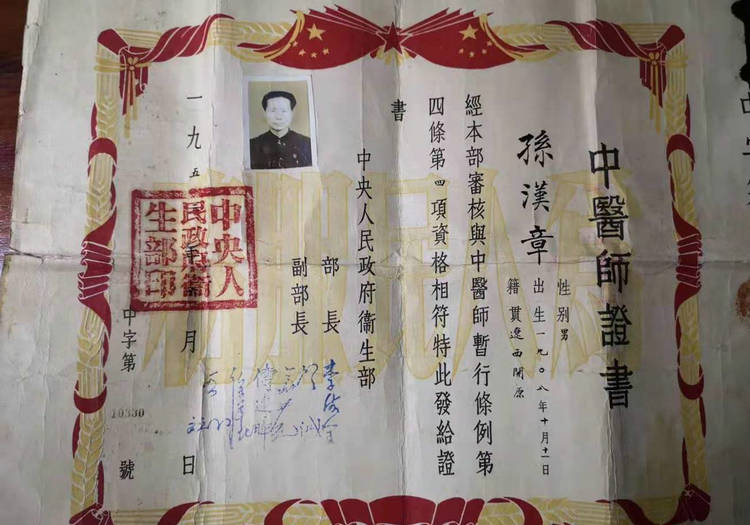 中醫師證書
孫漢章
性別男
出生一九〇八年十月十一日
籍貫遼西開原
經本部審核與中醫師暫行條例第
四條第四項資格相符特此發給證
書
中央人民政府衞生部
部長
副部長
李德全
一九五
月
日
中央人
民政府衞
生部印
中字第
10330
號